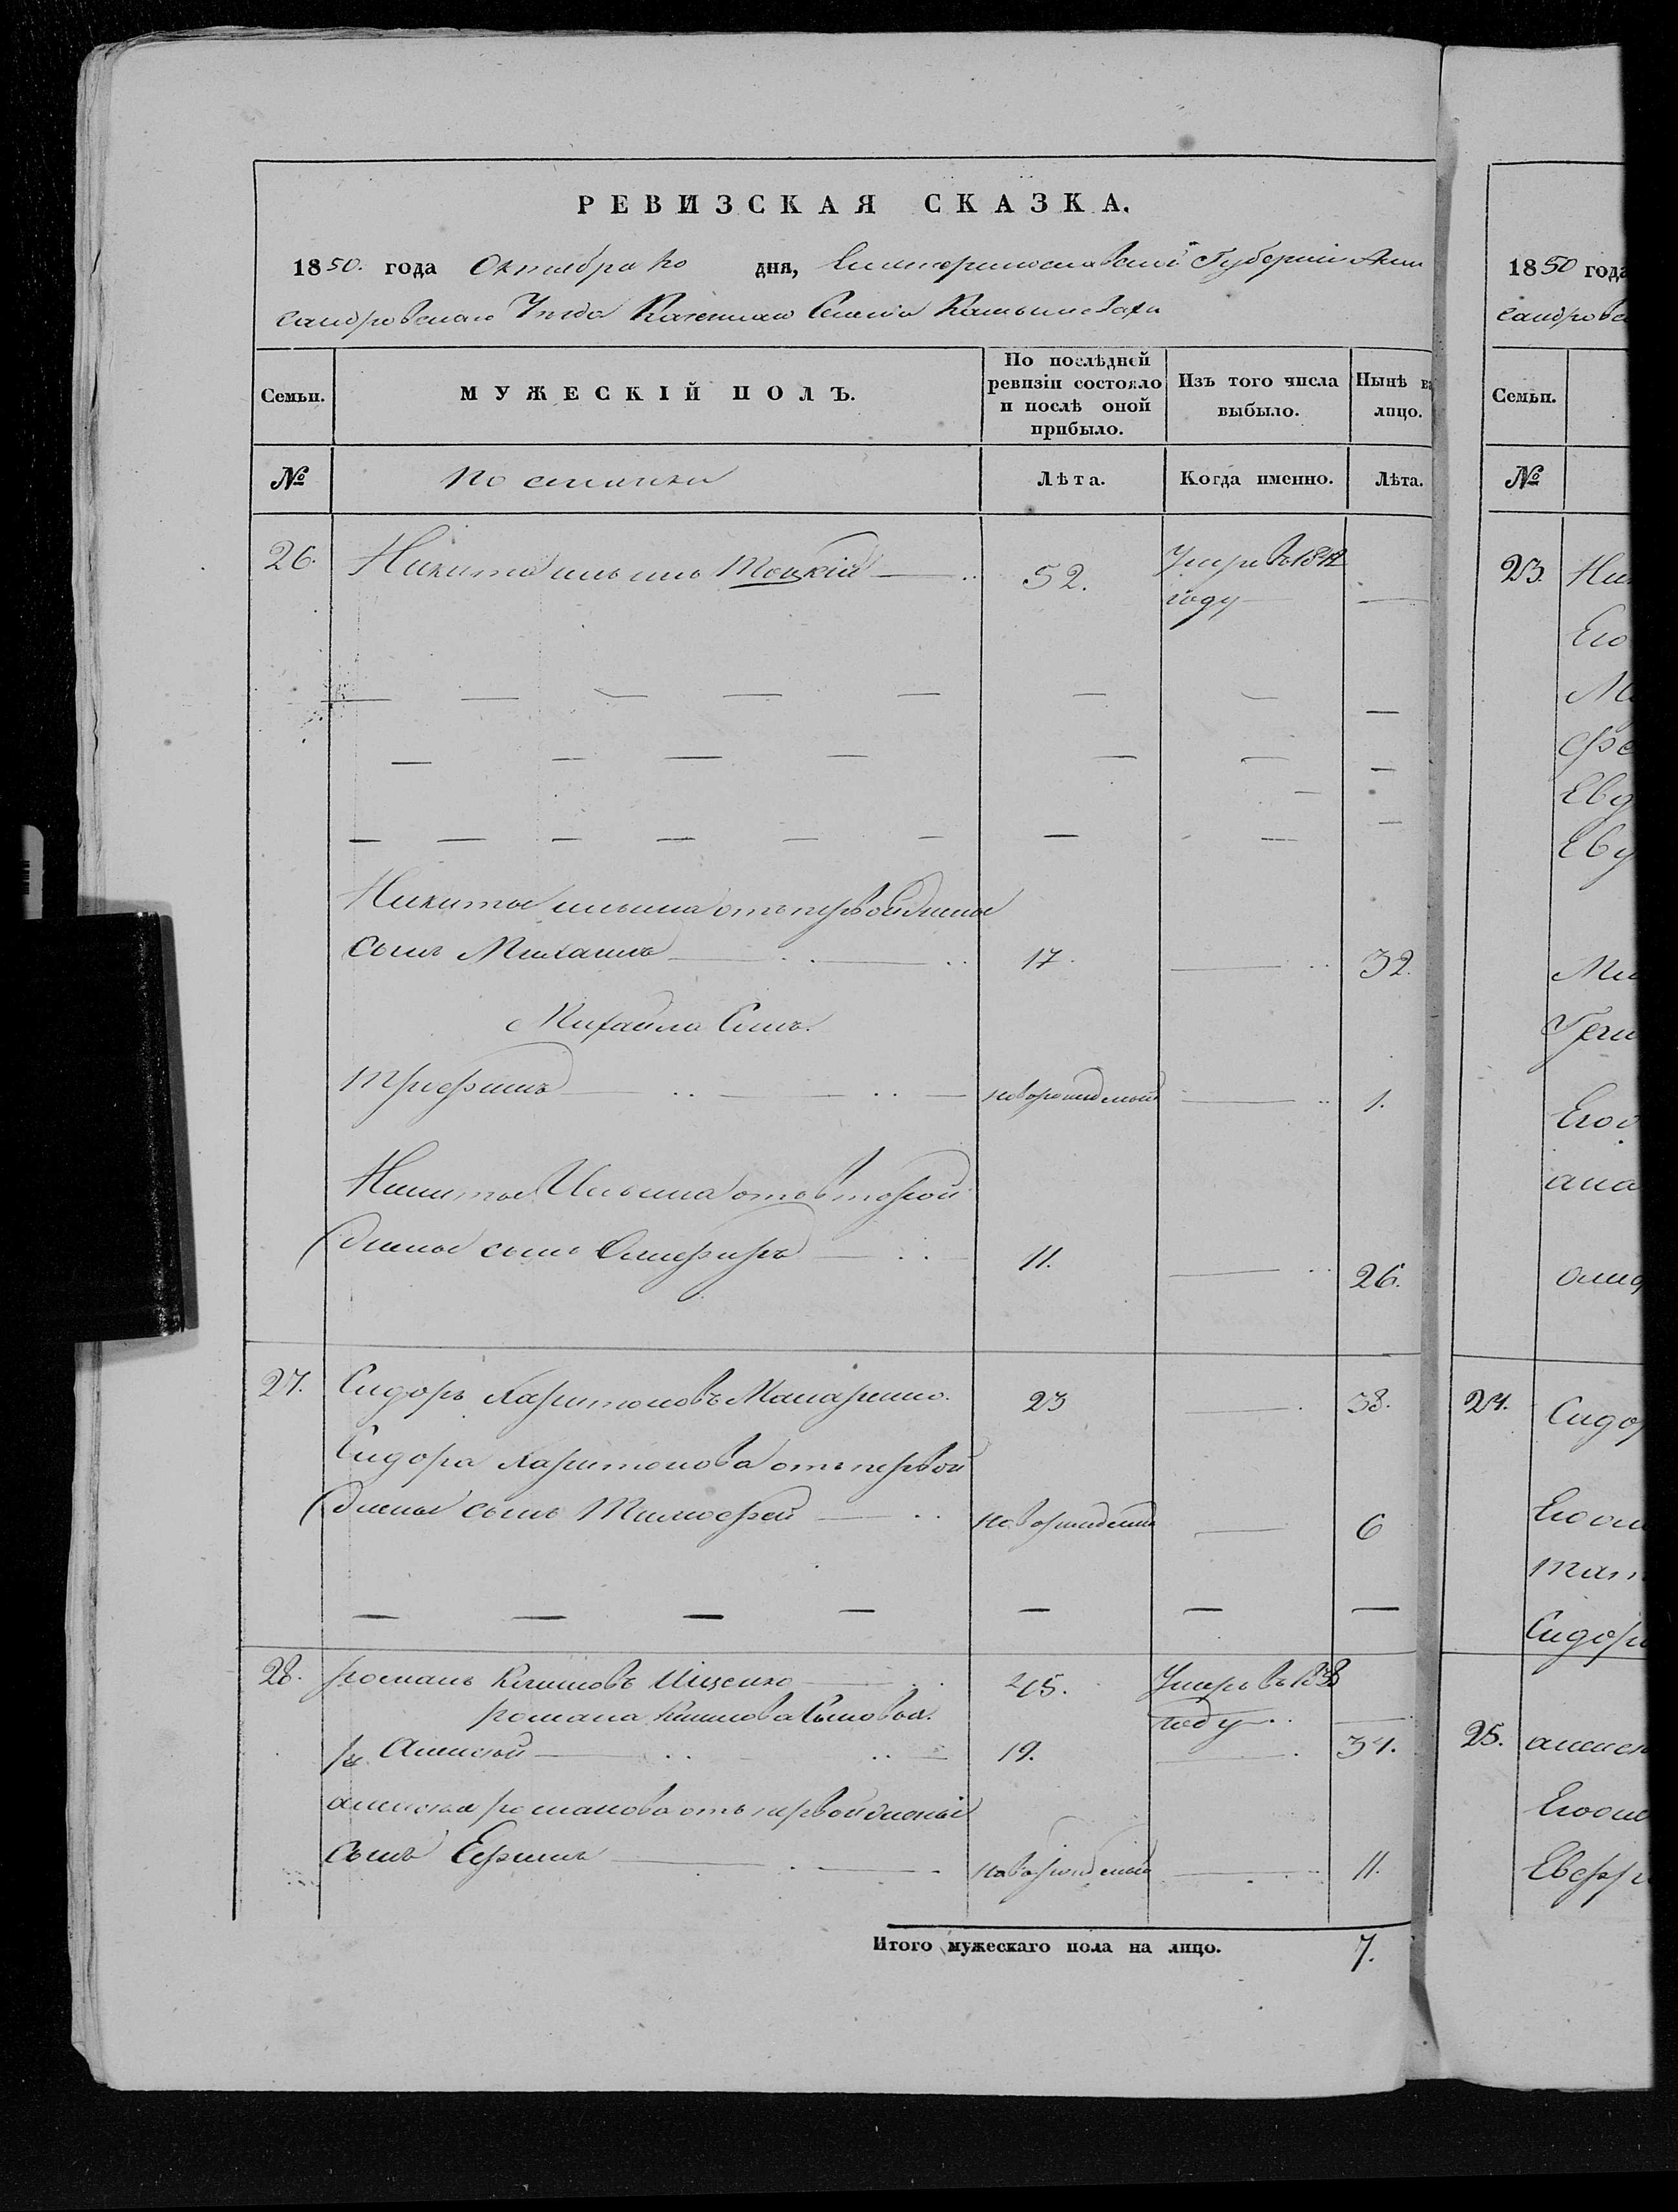 РЕВИЗСКАЯ СКАЗКА.
1850. года Октября 20 дня, Екатеринославской Губерніи Алек
сандровскаго Уѣзда Казеннаго Селенія
Семьи.
МУЖЕСКІЙ ПОЛЪ.
По послѣдней ревизіи состояло и послѣ оной прибыло.
Изъ того числа выбыло.
Нынѣ въ лицо.
№
Лѣта.
Когда именно.
Лѣта.
26. Никита Ильинъ Тоцкій 52. Умеръ въ 1842
году
Никиты Ильина отъ первой жены
сынъ Михаилъ 17. 32.
Михаила Сынъ.
Трофимъ новорожденный 1.
Никиты Ильина отъ второй
жены сынъ 11. 26.
27. Сидоръ Харитоновъ Макаренко. 23 38.
Сидора Харитонова отъ первой
жены сынъ Тимофей новорожденный 6
28. романъ Климовъ Ищенко 45. Умеръ въ 1838
году
романа Климова Сыновья.
1й Алексѣй 19. 34.
алексѣя романова отъ первой жены
Сынъ Ефимъ новорожденный 11.
Итого мужескаго пола на лицо. 7.
1850 года
сандровс
Семьи.
№
23. Ни
Его
Ев
Ми
Его
24. Сидор
Сидор
25. алекс